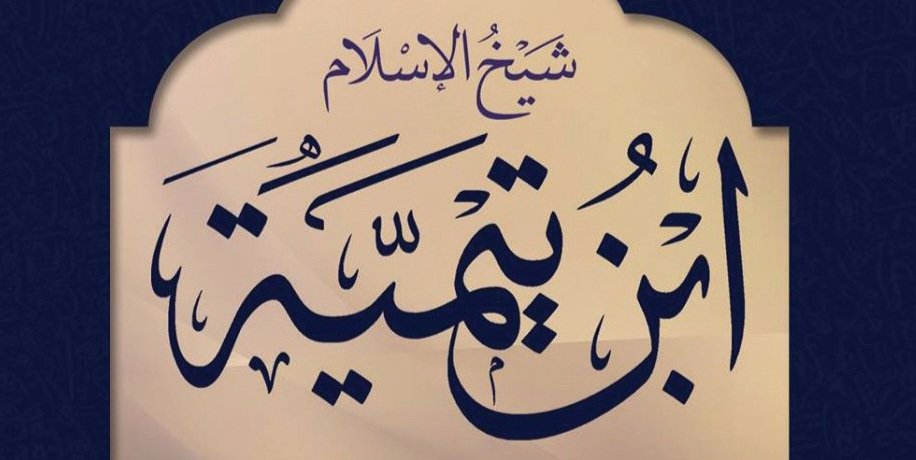 شَيْخُ الإِسْلَام
ابْنُ تَيْمِيَّةَ